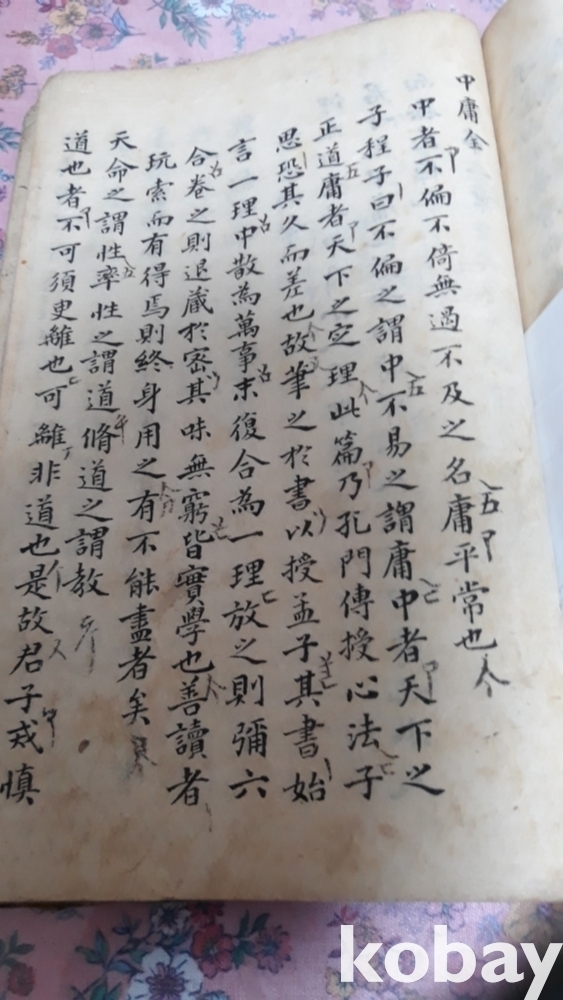 中庸全
中者不偏不倚無過不及之名庸平常也
子程子曰不偏之謂中不易之謂庸中者天下之
正道庸者天下之定理此篇乃孔門傳授心法子
思恐其久而差也故筆之扵書以授孟子其書始
言一理中散為萬事末復合為一理放之則彌六
合卷之則退藏扵密其味無窮皆實學也善讀者
玩索而有得焉則終身用之有不能盡者矣
天命之謂性率性之謂道脩道之謂教
道也者不可須臾離也可離非道也是故君子戒慎
kobay